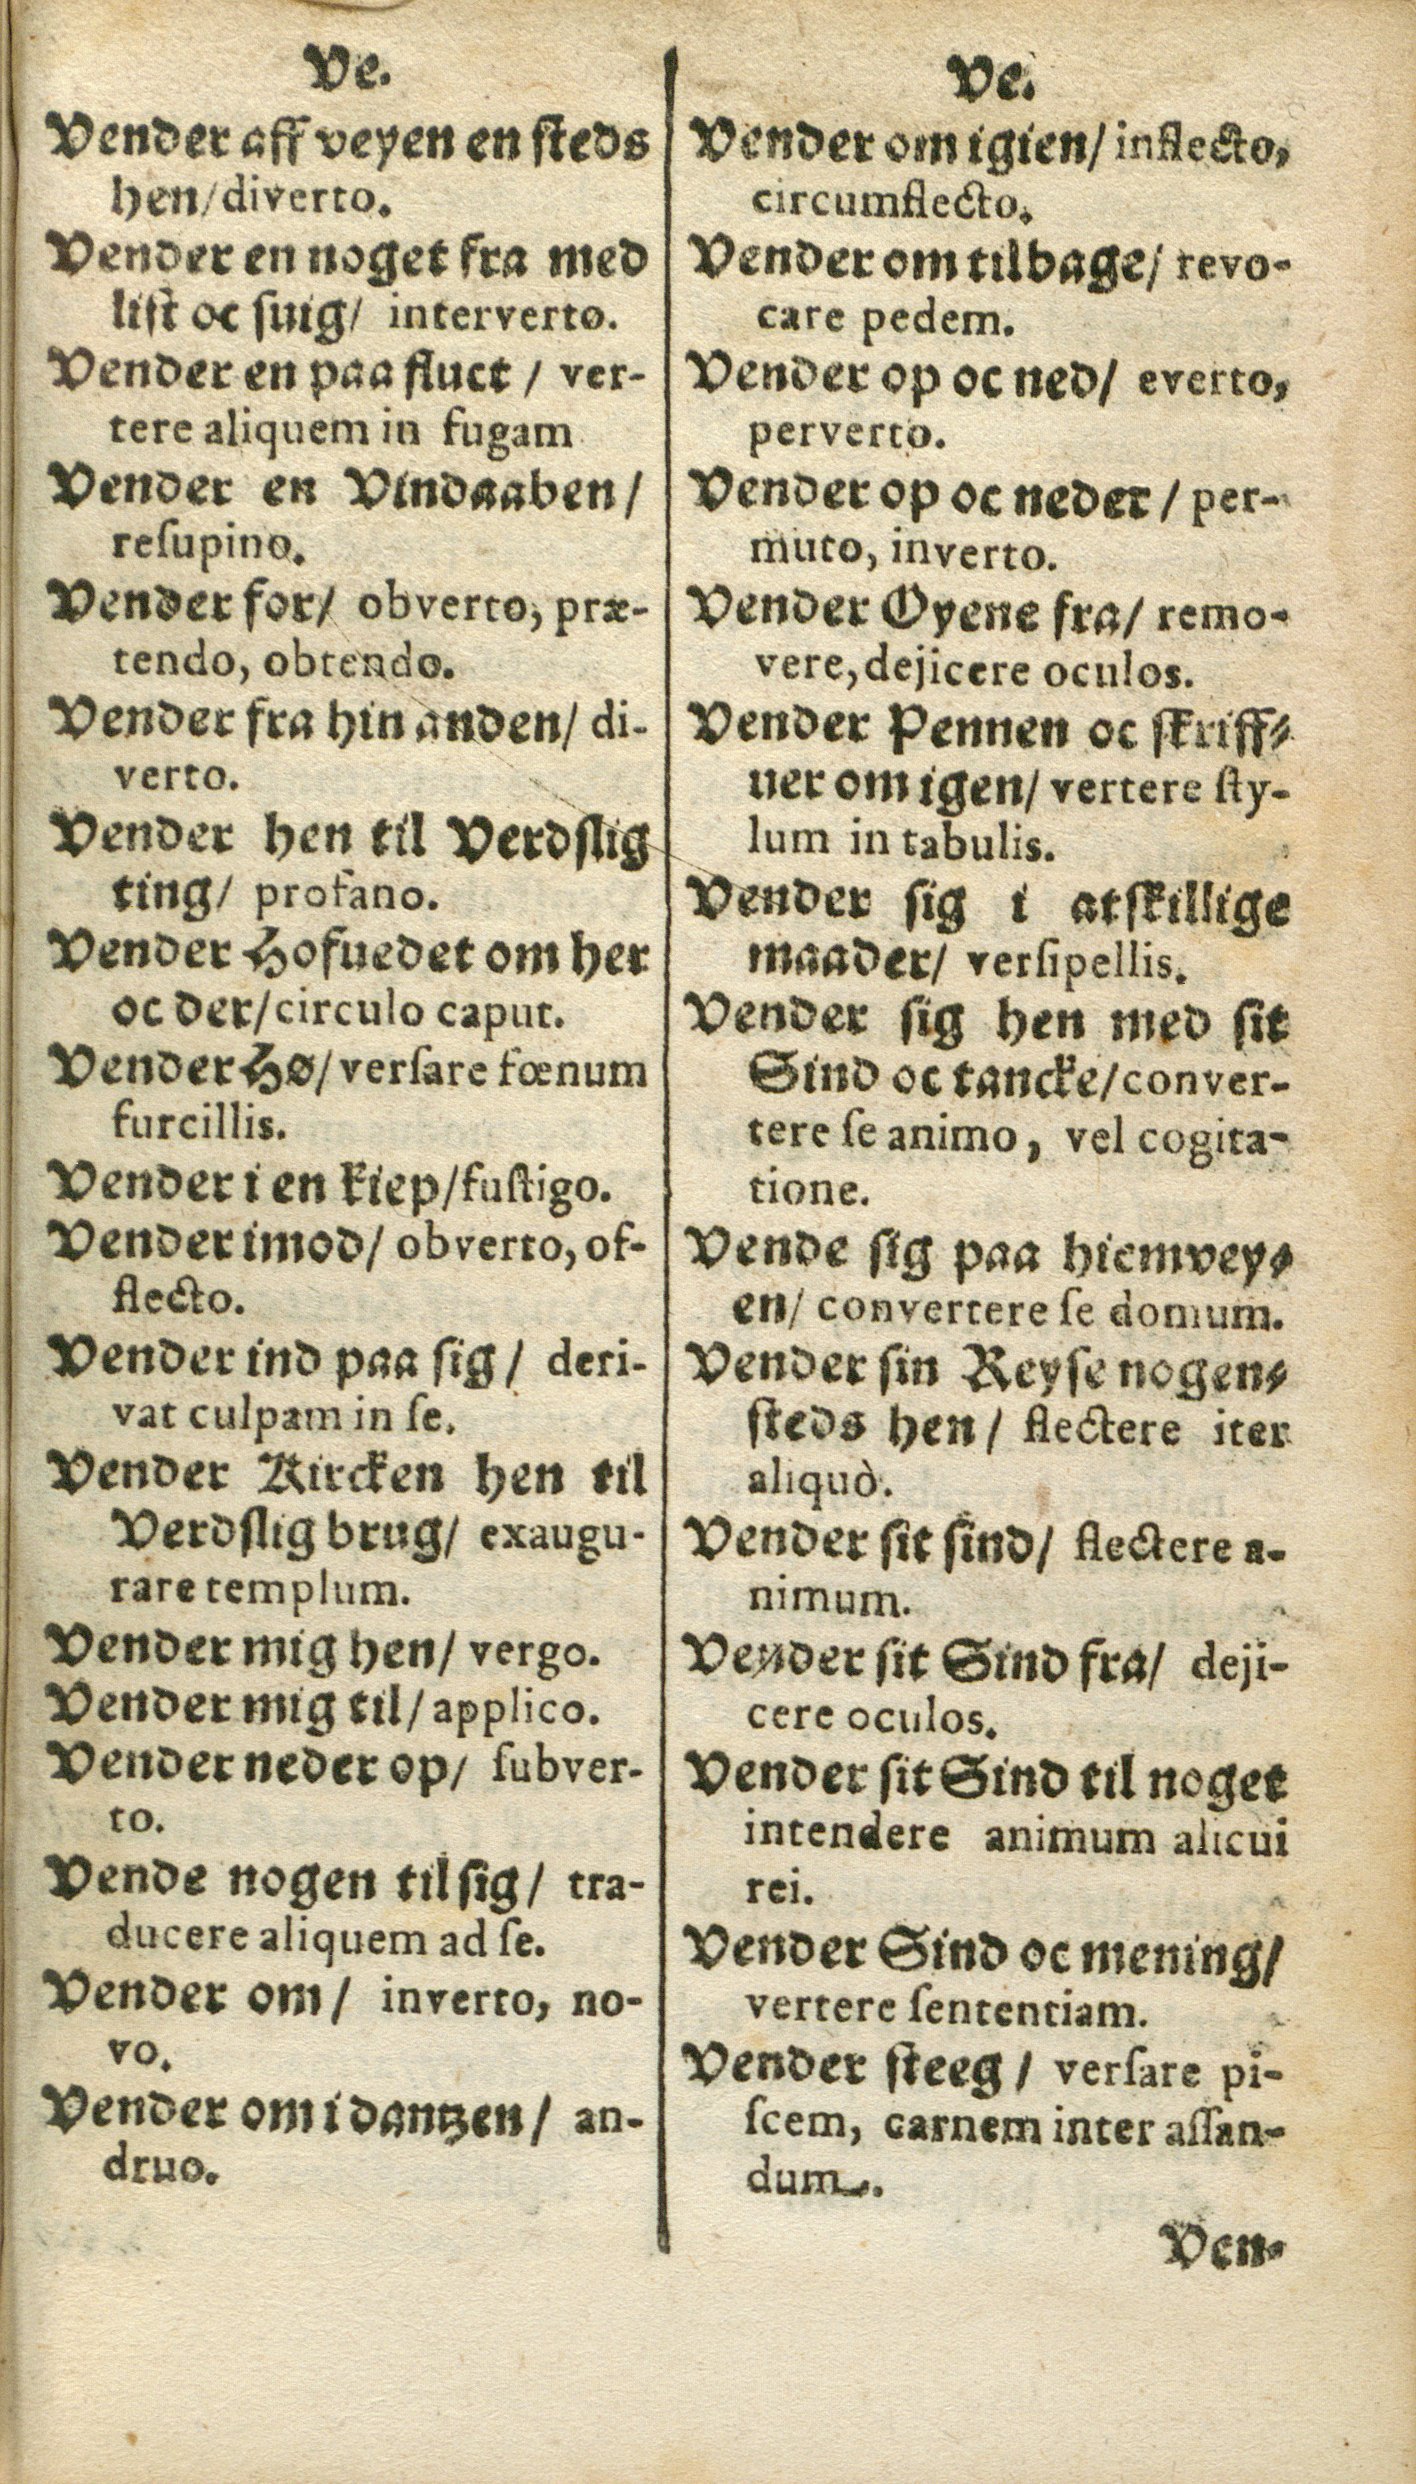 Ve.
Vender aff veyen en steds
hen/ diverto.
Vender en noget fra med
list oc suig/ interverto.
Vender en paa fluct / ver-
tere aliquem in fugam
Vender en Vindaaben/
reſupino.
Vender for/ obverto, præ-
tendo, obtendo.
Vender fra hin anden/ di-
verto.
Vender hen til Verdſlig
ting/ profano.
Vender Hofuedet om her
oc der/ circulo caput.
Vender Hø/ verſare fœnum
furcillis.
Vender i en kiep/ fuſtigo.
Vender imod/ obverto, of-
flecto.
Vender ind paa ſig/ deri-
vat culpam in ſe.
Vender Kircken hen til
Verdſlig brug/ exaugu-
rare templum.
Vender mig hen/ vergo.
Vender mig til/ applico.
Vender neder op/ ſubver-
to.
Vende nogen til ſig/ tra-
ducere aliquem ad ſe.
Vender om/ inverto, no-
vo.
Vender om i dantzen/ an-
druo.
Ve.
Vender om igien/ inflecto,
circumflecto.
Vender om tilbage/ revo-
care pedem.
Vender op oc ned/ everto,
perverto.
Vender op oc neder/ per-
muto, inverto.
Vender Oyene fra/ remo-
vere, dejicere oculos.
Vender Pennen oc ſkriff-
uer om igen/ vertere ſty-
lum in tabulis.
Vender ſig i atſkillige
maader/ verſipellis.
Vender ſig hen med ſit
Sind oc tancke/ conver-
tere ſe animo, vel cogita-
tione.
Vende ſig paa hiemvey-
en/ convertere ſe domum.
Vender ſin Reyſe nogen-
ſteds hen/ flectere iter
aliquò.
Vender ſit ſind/ flectere a-
nimum.
Vender ſit Sind fra/ deji-
cere oculos.
Vender ſit Sind til noget
intendere animum alicui
rei.
Vender Sind oc mening/
vertere ſententiam.
Vender ſteeg/ verſare pi-
ſcem, carnem inter aſſan-
dum.
Ven-